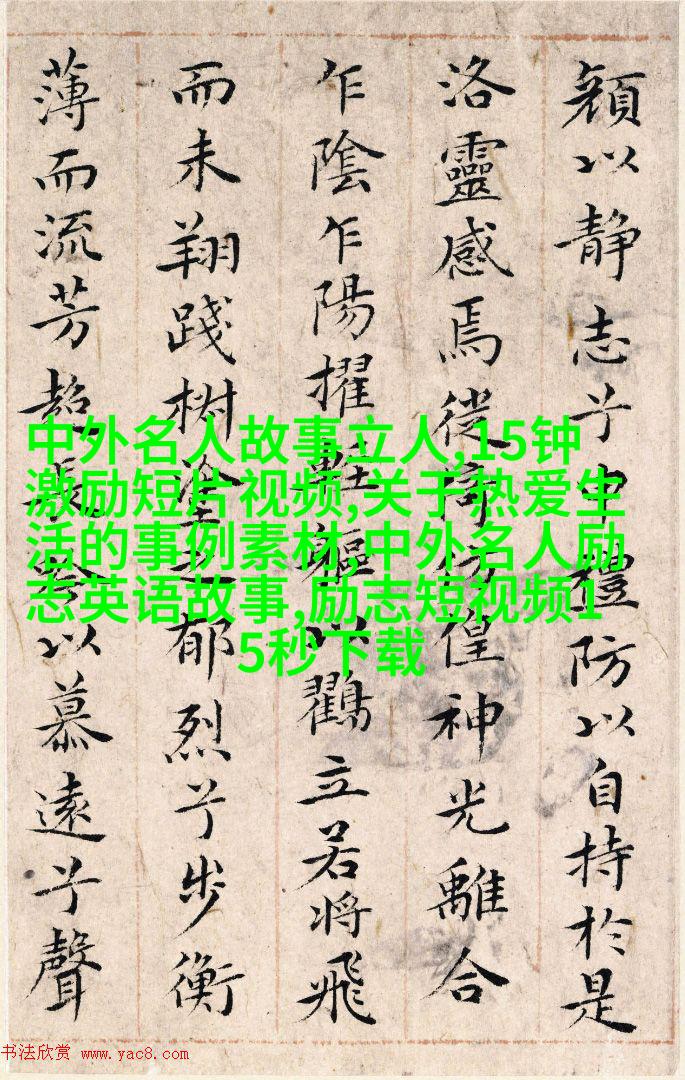 顔以静志兮申禮防以自持於是
洛靈感焉徙倚彷偟神光離合
乍陰乍陽擢輕軀以鸖立若將飛
而未翔踐椒塗之郁烈兮步衡
薄而流芳超長吟以慕遠兮聲
中外名人故事立人,15钟
激励短片视频,关于热爱生
活的事例素材,中外名人励
志英语故事,励志短视频1
5秒下载
书法欣赏 www.yac8.com